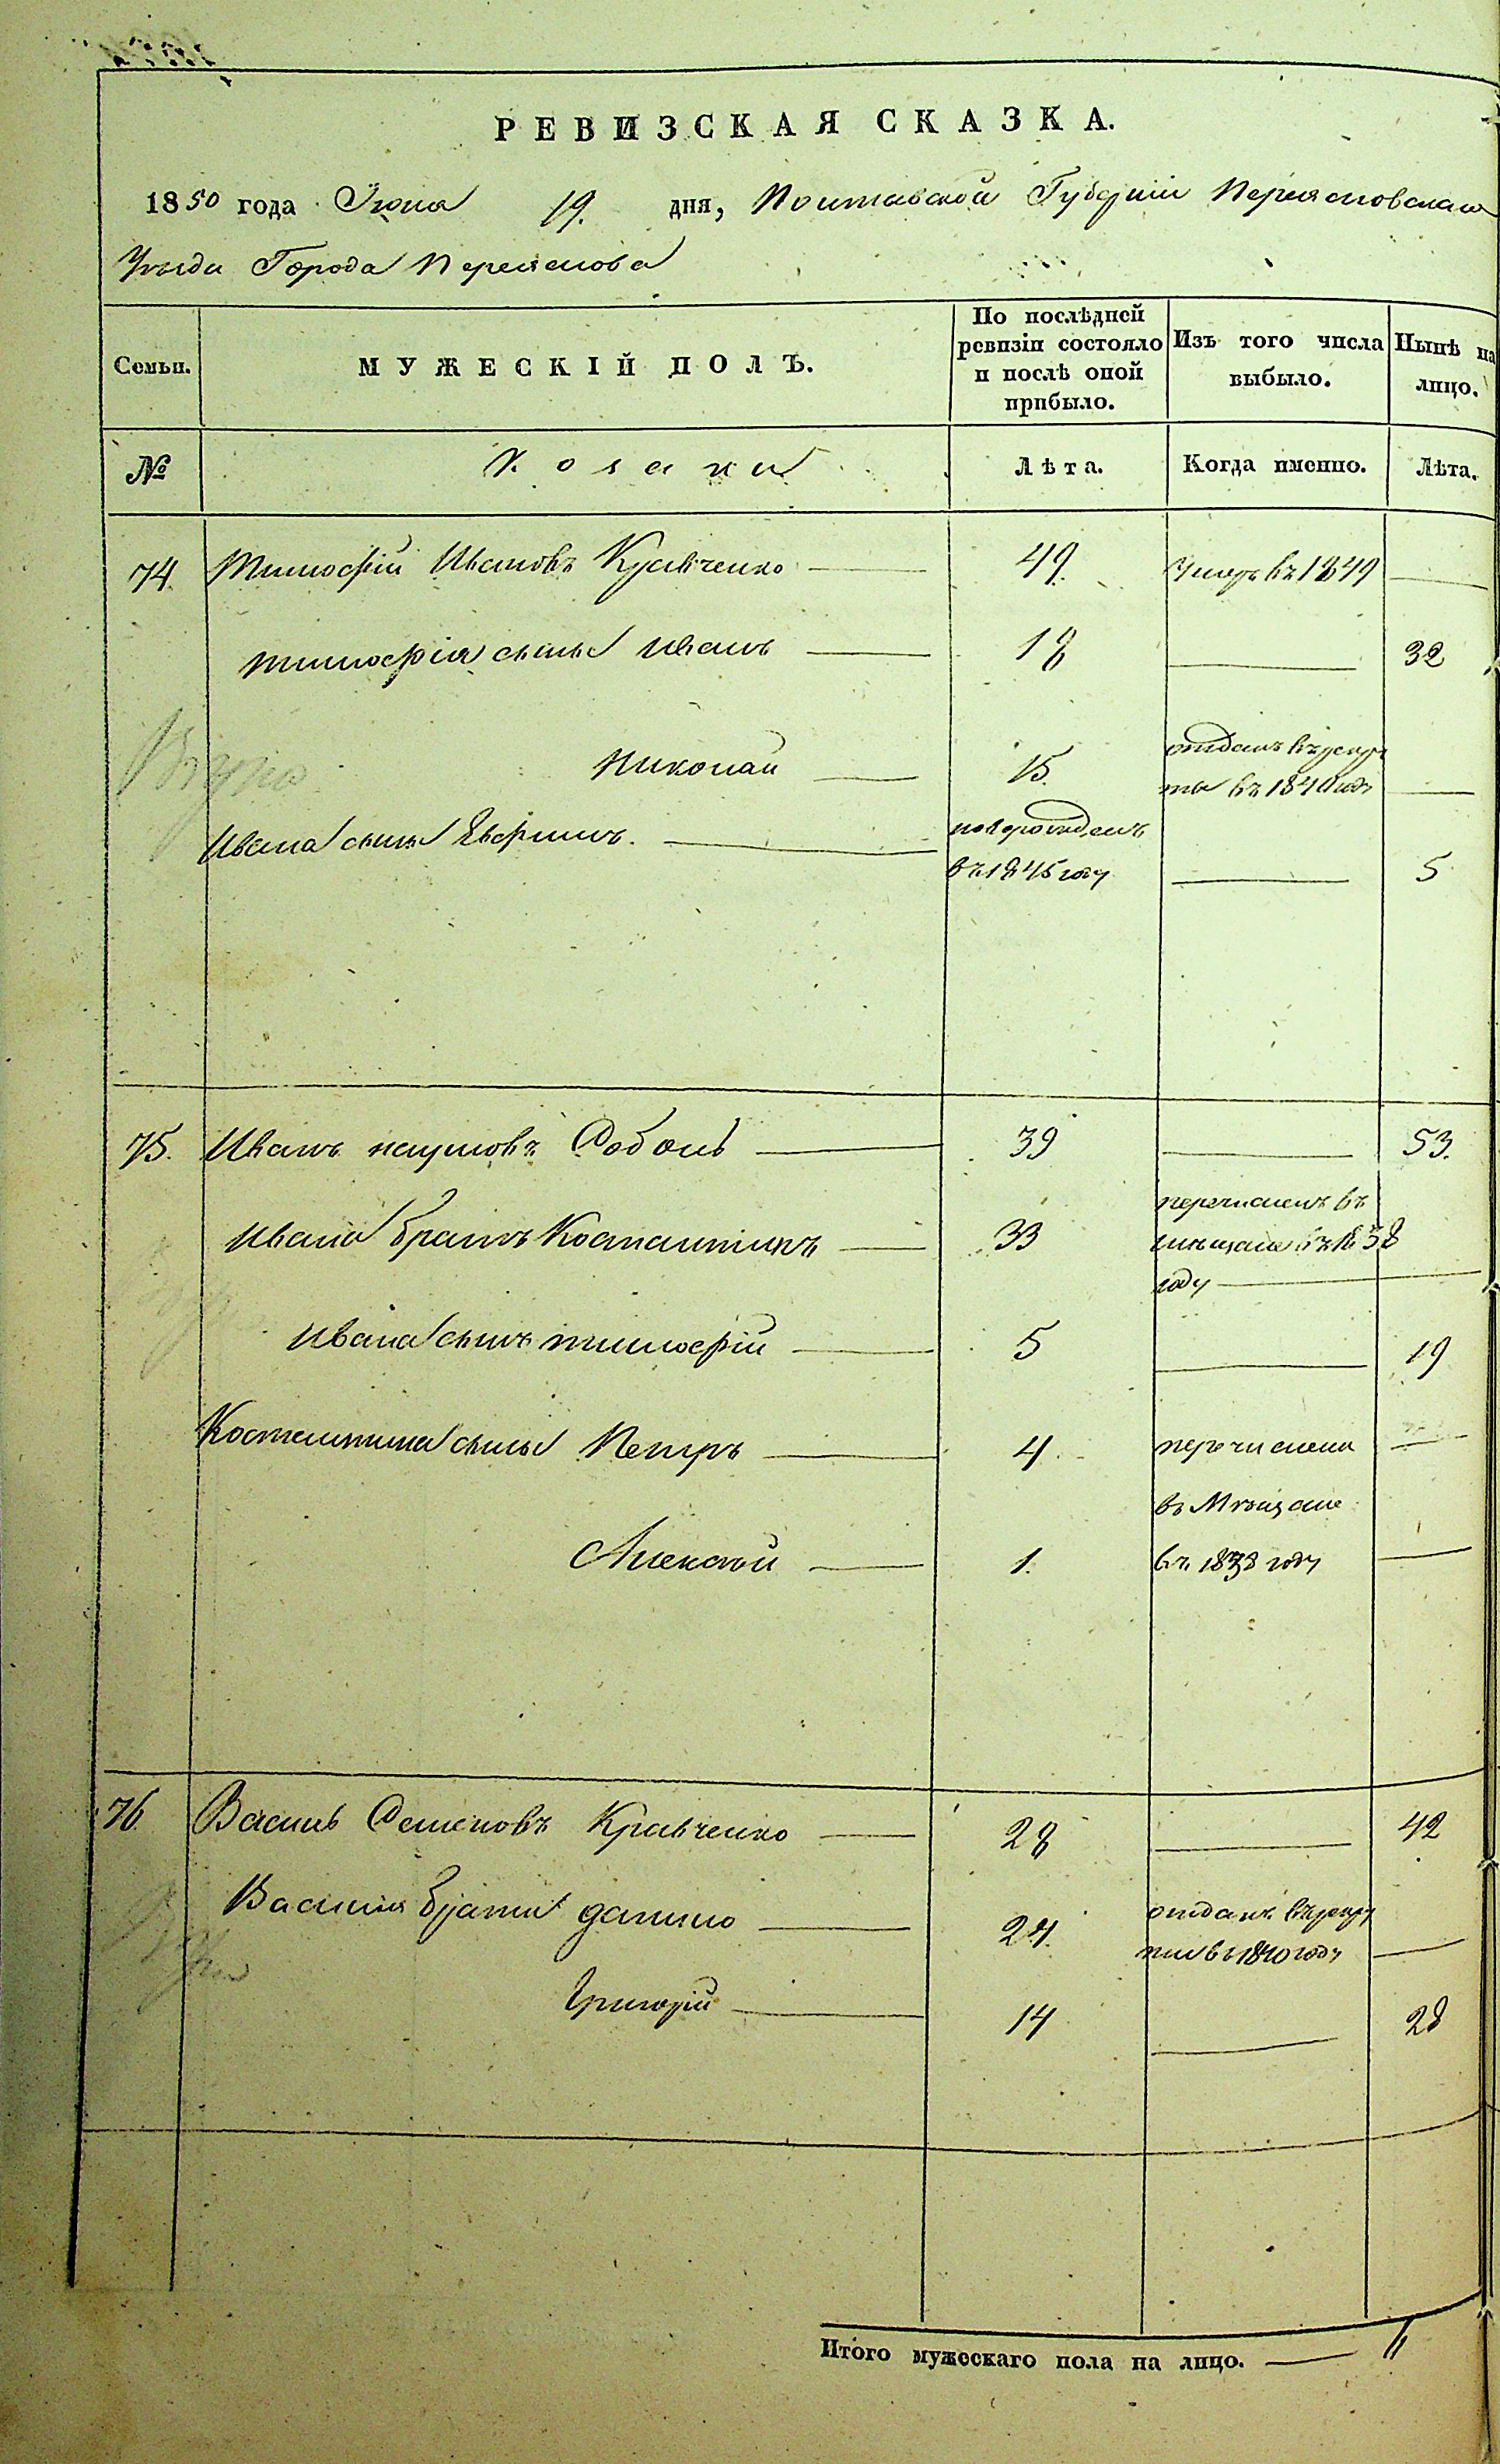 РЕВИЗСКАЯ СКАЗКА.
1850 года Іюня 19. дня, Полтавской Губерніи Переясловскаго
Уѣзда Города Переяслова
Семьи. МУЖЕСКІЙ ПОЛЪ. По послѣдней ревизіи состояло и послѣ оной прибыло. Изъ того числа выбыло. Нынѣ на лицо.
№ Козаки Лѣта. Когда именно. Лѣта.
74. Тимофій Ивановъ Кравченко — 49. Умеръ въ 1849 —
Тимофія сынъ Иванъ — 18 — 32
Николай — 15. отданъ въ рекру
ты въ 1840 году —
Ивана сынъ Ефримъ. — новорожденъ
въ 1845 году — 5
75. Иванъ Наумовъ Соболь — 39 — 53.
Ивана братъ Костантинъ — 33 перечисленъ въ
мѣщане въ 1838
году —
Ивана сынъ Тимофій — 5 — 19
Костантина сыны Петръ — 4. перечислены —
въ Мѣщане
Алексѣй — 1. въ 1838 году —
76. Василь Семеновъ Кравченко — 28 — 42
Василия браты Данило — 24. отданъ въ рекру
ты въ 1840 году —
Григорій — 14 — 28
Итого мужескаго пола на лицо. —